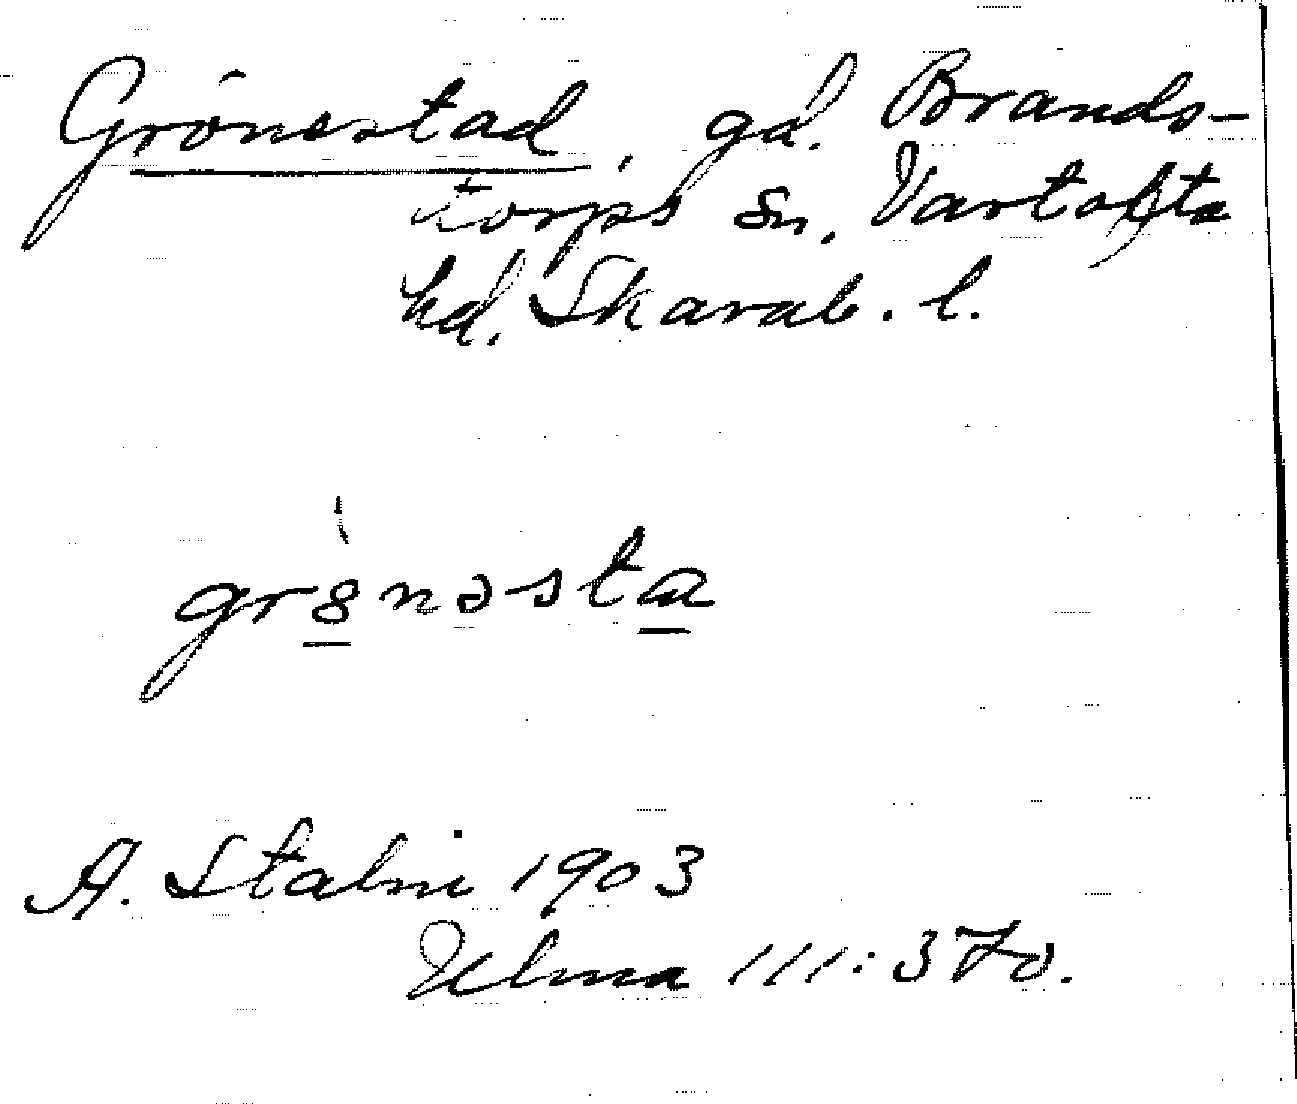 Grönestad, gd. Brands-
torps sn, Vartofta
hd. Skarab. l.
grønəsta
A. Stalin 1903
Ulma 111:370.